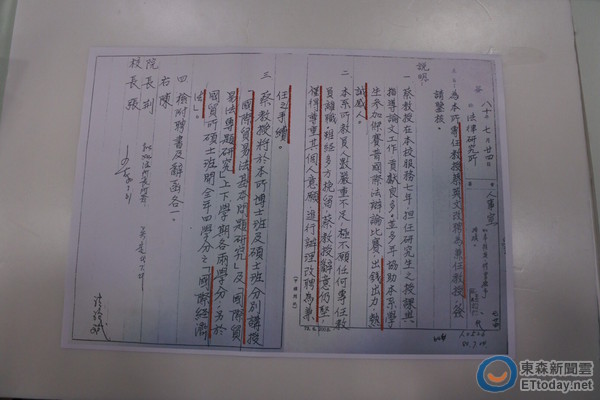 八十 七 月 廿四
法律研究所
人事室
主旨：為本所專任教授蔡英文改聘為兼任教授，簽
請鑒核。
說明
一 蔡教授在本校服務七年，擔任研究生之授課與
指導論文工作，貢獻良多，並多年協助本系學
生參加傑賽普國際法辯論比賽，出錢出力，熱
誠感人。
二 本系所教員人數嚴重不足，極不願任何專任教
員離職，雖經多方挽留，蔡教授辭意仍堅，
僅得尊重其個人意願，進行辦理改聘為兼
任之手續。
三 蔡教授將於本所博士班及碩士班分別講授
「國際貿易法基本問題研究」及「國際貿
易法專題研究」上下學期各兩學分，另於
國貿所碩士班開全年四學分之「國際經濟
法」。
四 檢附聘書及辭函各一。
右陳
院長 劉
校長 張
東森新聞雲
ETtoday.net